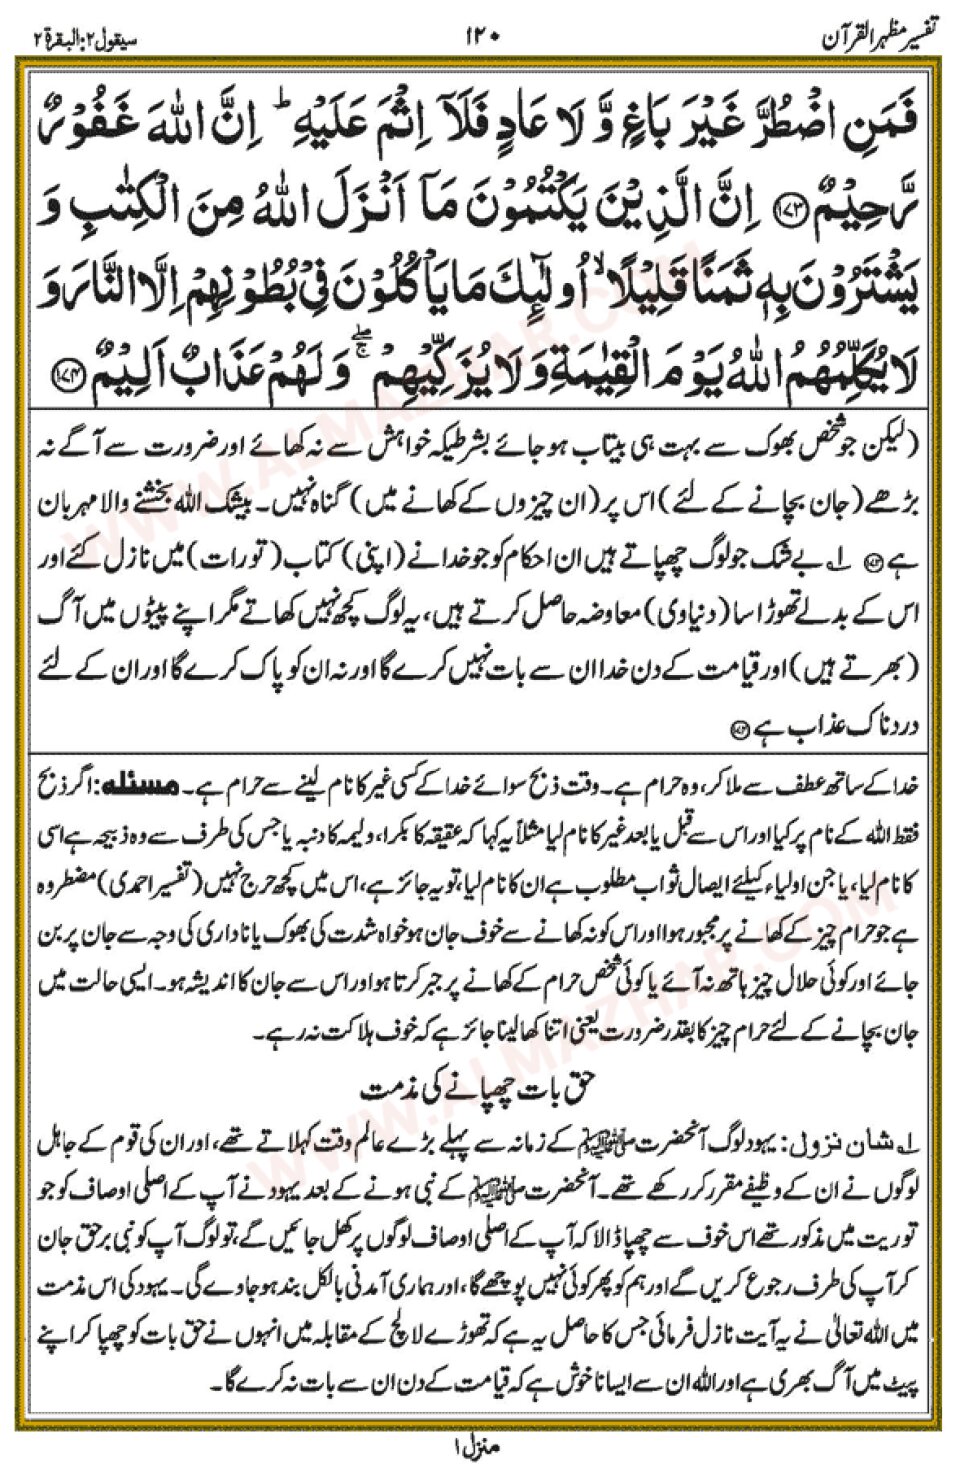 تفسیر مظہر القرآن
۱۲۰
سیقول ۲: البقرة ۲
فَمَنِ اضْطُرَّ غَيْرَ بَاغٍ وَّ لَا عَادٍ فَلَآ اِثْمَ عَلَيْهِ ؕ اِنَّ اللّٰهَ غَفُوْرٌ
رَّحِيْمٌ ﴿۱۷۳﴾ اِنَّ الَّذِيْنَ يَكْتُمُوْنَ مَآ اَنْزَلَ اللّٰهُ مِنَ الْكِتٰبِ وَ
يَشْتَرُوْنَ بِهٖ ثَمَنًا قَلِيْلًا ۙ اُولٰٓئِكَ مَا يَاْكُلُوْنَ فِيْ بُطُوْنِهِمْ اِلَّا النَّارَ وَ
لَا يُكَلِّمُهُمُ اللّٰهُ يَوْمَ الْقِيٰمَةِ وَ لَا يُزَكِّيْهِمْ ۖۚ وَ لَهُمْ عَذَابٌ اَلِيْمٌ ﴿۱۷۴﴾
(لیکن جو شخص بھوک سے بہت ہی بیتاب ہو جائے بشرطیکہ خواہش سے نہ کھائے اور ضرورت سے آگے نہ
بڑھے (جان بچانے کے لئے) اس پر (ان چیزوں کے کھانے میں) گناہ نہیں۔ بیشک اللہ بخشنے والا مہربان
ہے ﴿۱۷۳﴾ ۱؎ بے شک جو لوگ چھپاتے ہیں ان احکام کو جو خدا نے (اپنی) کتاب (تورات) میں نازل کئے اور
اس کے بدلے تھوڑا سا (دنیاوی) معاوضہ حاصل کرتے ہیں، یہ لوگ کچھ نہیں کھاتے مگر اپنے پیٹوں میں آگ
(بھرتے ہیں) اور قیامت کے دن خدا ان سے بات نہیں کرے گا اور نہ ان کو پاک کرے گا اور ان کے لئے
دردناک عذاب ہے ﴿۱۷۴﴾
خدا کے ساتھ عطف سے ملا کر، وہ حرام ہے۔ وقت ذبح سوائے خدا کے کسی غیر کا نام لینے سے حرام ہے۔ مسئلہ: اگر ذبح
فقط اللہ کے نام پر کیا اور اس سے قبل یا بعد غیر کا نام لیا مثلاً یہ کہا کہ عقیقہ کا بکرا، ولیمہ کا دنبہ یا جس کی طرف سے وہ ذبیحہ ہے اسی
کا نام لیا، یا جن اولیاء کیلئے ایصال ثواب مطلوب ہے ان کا نام لیا، تو یہ جائز ہے، اس میں کچھ حرج نہیں (تفسیر احمدی) مضطر وہ
ہے جو حرام چیز کے کھانے پر مجبور ہوا اور اس کو نہ کھانے سے خوف جان ہو خواہ شدت کی بھوک یا ناداری کی وجہ سے جان پر بن
جائے اور کوئی حلال چیز ہاتھ نہ آئے یا کوئی شخص حرام کے کھانے پر جبر کرتا ہو اور اس سے جان کا اندیشہ ہو۔ ایسی حالت میں
جان بچانے کے لئے حرام چیز کا بقدر ضرورت یعنی اتنا کھا لینا جائز ہے کہ خوف ہلاکت نہ رہے۔
حق بات چھپانے کی مذمت
۱؎ شان نزول: یہود لوگ آنحضرت ﷺ کے زمانہ سے پہلے بڑے عالم وقت کہلاتے تھے، اور ان کی قوم کے جاہل
لوگوں نے ان کے وظیفے مقرر کر رکھے تھے۔ آنحضرت ﷺ کے نبی ہونے کے بعد یہود نے آپ کے اصلی اوصاف کو جو
توریت میں مذکور تھے اس خوف سے چھپا ڈالا کہ آپ کے اصلی اوصاف لوگوں پر کھل جائیں گے، تو لوگ آپ کو نبی برحق جان
کر آپ کی طرف رجوع کریں گے اور ہم کو پھر کوئی نہیں پوچھے گا، اور ہماری آمدنی بالکل بند ہو جاوے گی۔ یہود کی اس مذمت
میں اللہ تعالیٰ نے یہ آیت نازل فرمائی جس کا حاصل یہ ہے کہ تھوڑے لالچ کے مقابلہ میں انہوں نے حق بات کو چھپا کر اپنے
پیٹ میں آگ بھری ہے اور اللہ ان سے ایسا ناخوش ہے کہ قیامت کے دن ان سے بات نہ کرے گا۔
منزل ۱
WWW.ALMAZHAR.COM
WWW.ALMAZHAR.COM